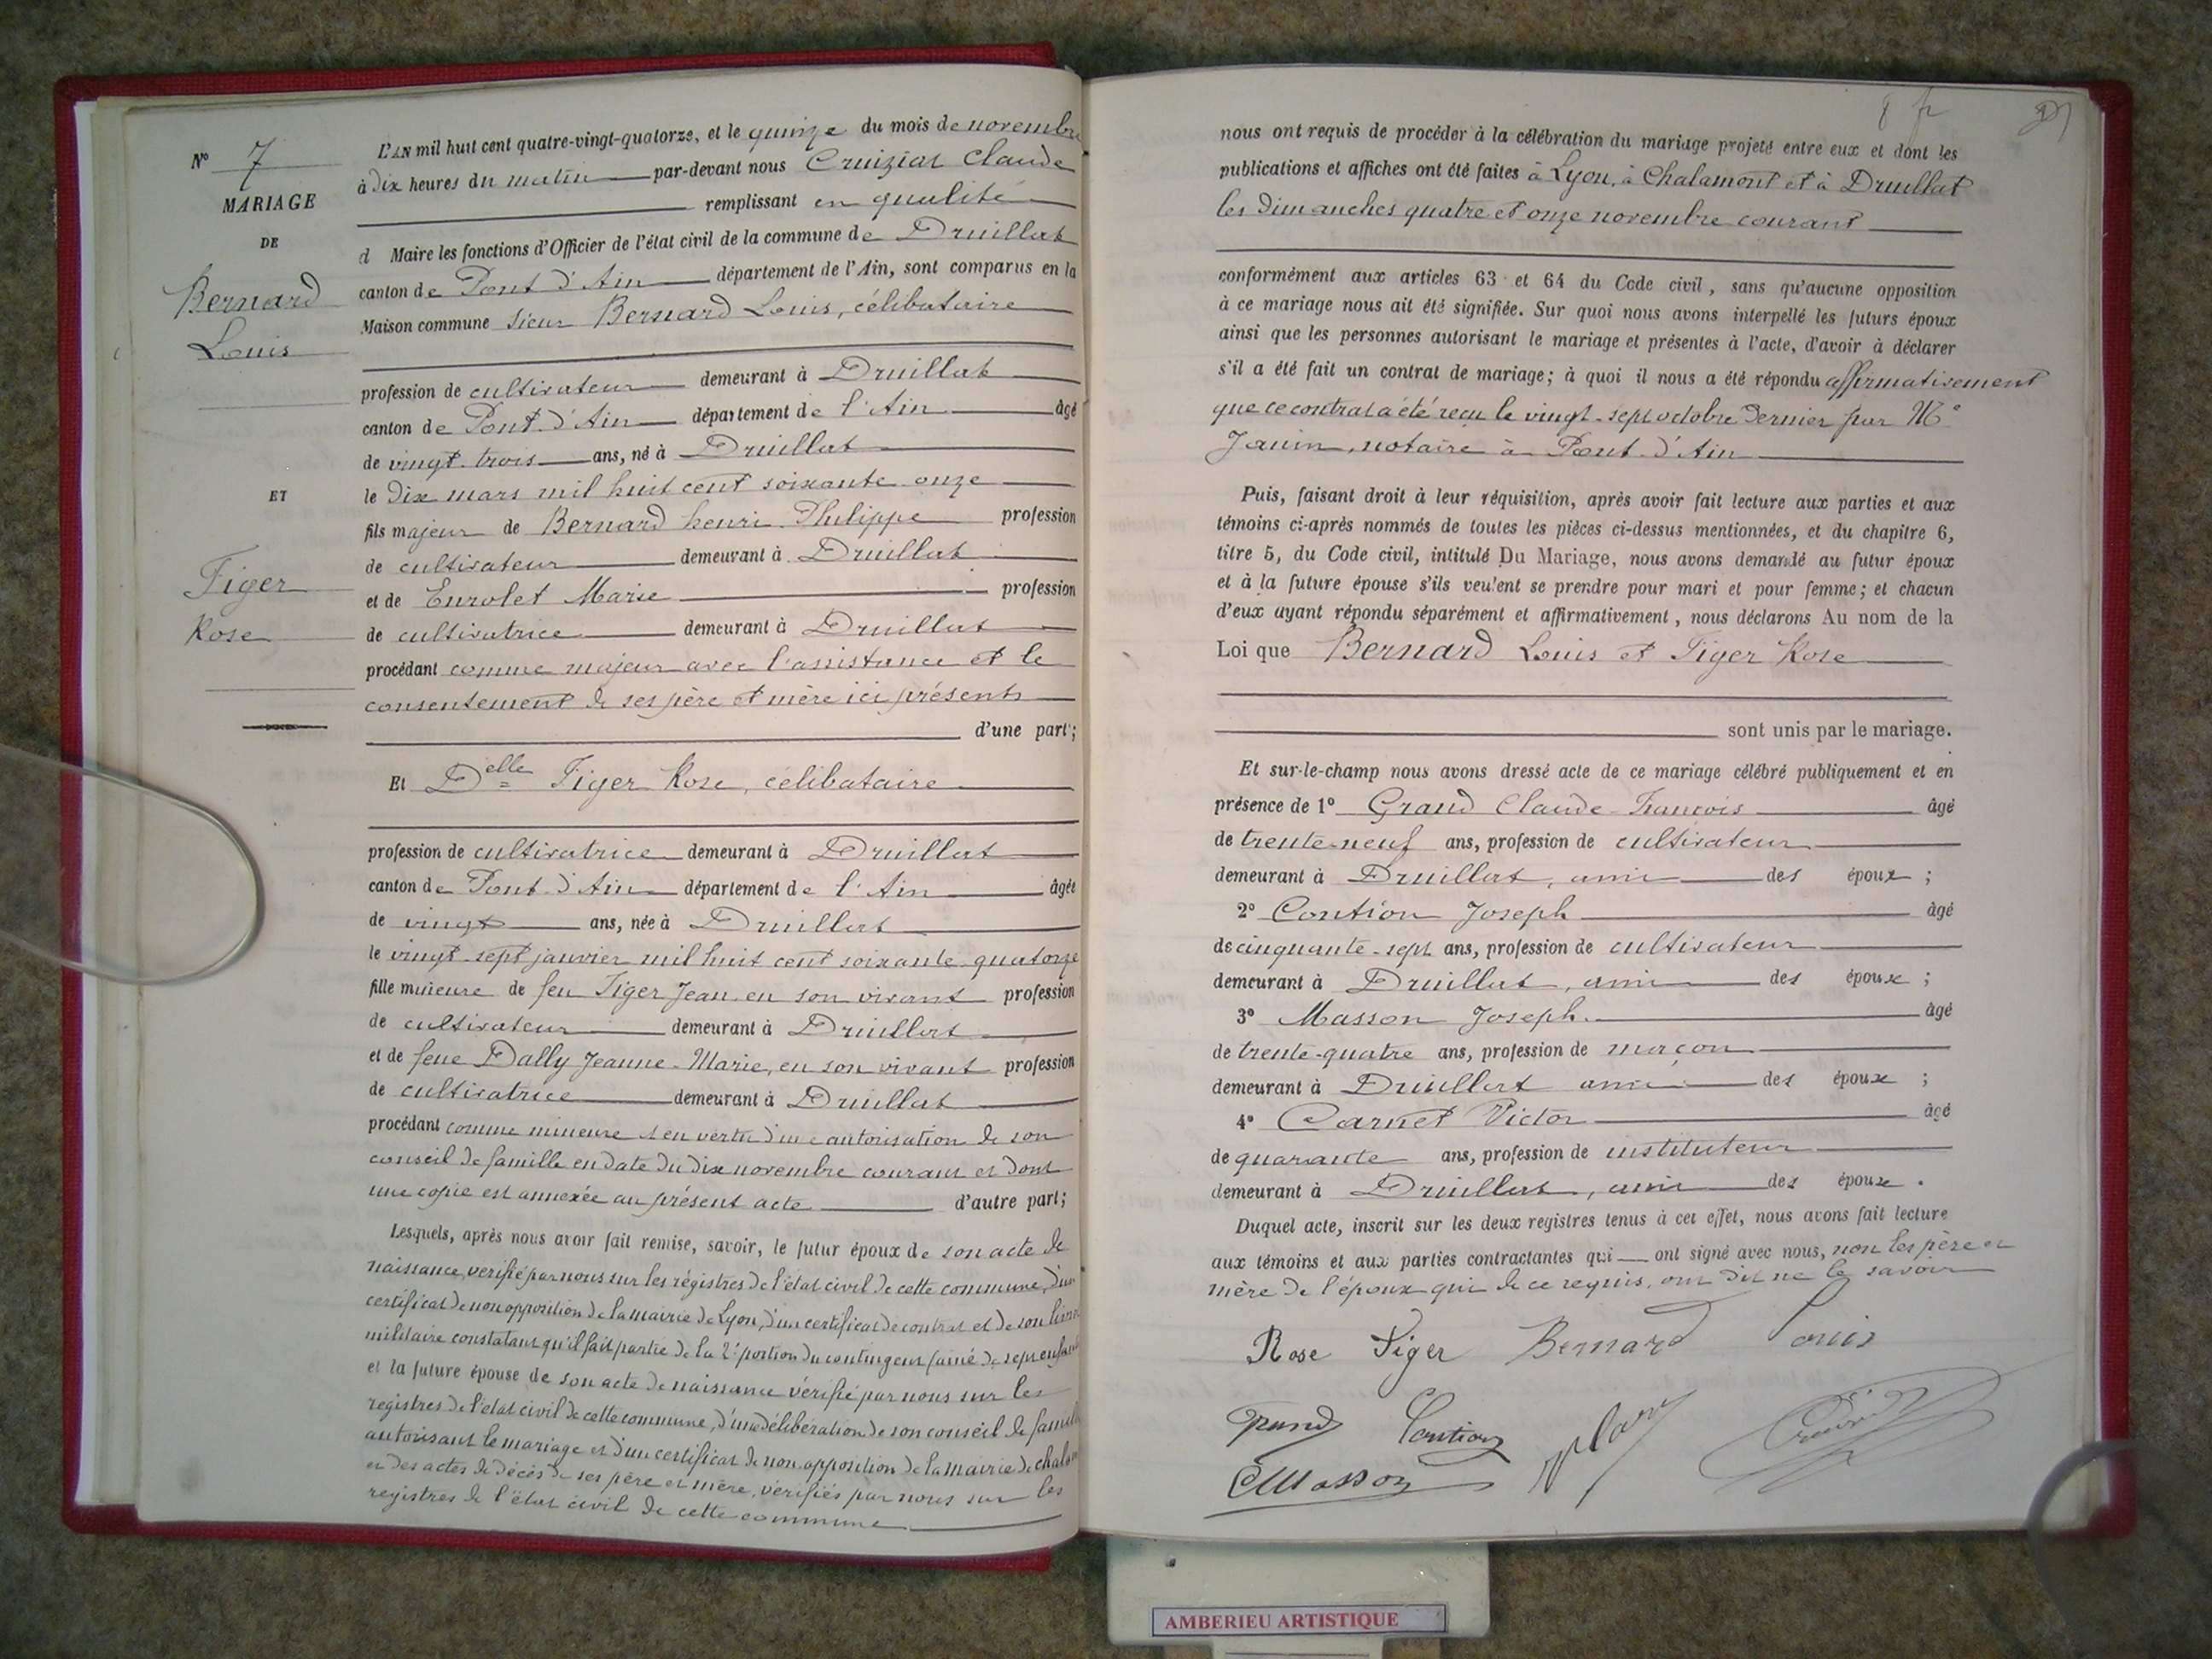 N° 7
MARIAGE
DE
Bernard
Louis
ET
Tiger
Rose
L'AN mil huit cent quatre-vingt-quatorze, et le quinze du mois de novembre
à dix heures du matin par-devant nous Cruiziat Claude
remplissant en qualité
d Maire les fonctions d'Officier de l'état civil de la commune de Druillat
canton de Pont d'Ain département de l'Ain, sont comparus en la
Maison commune sieur Bernard Louis, célibataire
profession de cultivateur demeurant à Druillat
canton de Pont-d'Ain département de l'Ain âgé
de vingt-trois ans, né à Druillat
le dix mars mil huit cent soixante-onze
fils majeur de Bernard henri-Philippe profession
de cultivateur demeurant à Druillat
et de Eurolet Marie profession
de cultivatrice demeurant à Druillat
procédant comme majeur avec l'assistance et le
consentement de ses père et mère ici présents
d'une part;
Et Delle Tiger Rose, célibataire
profession de cultivatrice demeurant à Druillat
canton de Pont-d'Ain département de l'Ain âgée
de vingt ans, née à Druillat
le vingt-sept janvier mil huit cent soixante-quatorze
fille mineure de feu Tiger Jean en son vivant profession
de cultivateur demeurant à Druillat
et de feue Dally Jeanne-Marie, en son vivant profession
de cultivatrice demeurant à Druillat
procédant comme mineure et en vertu d'une autorisation de son
conseil de famille en date du dix novembre courant et dont
une copie est annexée au présent acte d'autre part;
Lesquels, après nous avoir fait remise, savoir, le futur époux de son acte de
naissance, vérifié par nous sur les régistres de l'état civil de cette commune, d'un
certificat de non opposition de la mairie de Lyon, d'un certificat de contrat et de son livret
militaire constatant qu'il fait partie de la 2e portion du contingent (ainé de sept enfants
et la future épouse de son acte de naissance vérifié par nous sur les
registres de l'état civil de cette commune, d'une délibération de son conseil de famille
autorisant le mariage et d'un certificat de non opposition de la mairie de
et des actes de décès de ses père et mère, vérifiés par nous sur les
registres de l'état civil de cette commune
8 fr
nous ont requis de procéder à la célébration du mariage projeté entre eux et dont les
publications et affiches ont été faites à Lyon, à Chalamont et à Druillat
les dimanches quatre et onze novembre courant
conformément aux articles 63 et 64 du Code civil, sans qu'aucune opposition
à ce mariage nous ait été signifiée. Sur quoi nous avons interpellé les futurs époux
ainsi que les personnes autorisant le mariage et présentes à l'acte, d'avoir à déclarer
s'il a été fait un contrat de mariage; à quoi il nous a été répondu affirmativement
que ce contrat a été reçu le vingt-sept octobre dernier par Me
Janin, notaire à Pont-d'Ain
Puis, faisant droit à leur réquisition, après avoir fait lecture aux parties et aux
témoins ci-après nommés de toutes les pièces ci-dessus mentionnées, et du chapitre 6,
titre 5, du Code civil, intitulé Du Mariage, nous avons demandé au futur époux
et à la future épouse s'ils veulent se prendre pour mari et pour femme; et chacun
d'eux ayant répondu séparément et affirmativement, nous déclarons Au nom de la
Loi que Bernard Louis et Tiger Rose
sont unis par le mariage.
Et sur-le-champ nous avons dressé acte de ce mariage célébré publiquement et en
présence de 1° Grand Claude-François âgé
de trente-neuf ans, profession de cultivateur
demeurant à Druillat, ami des époux ;
2° Contion Joseph âgé
de cinquante-sept ans, profession de cultivateur
demeurant à Druillat, ami des époux ;
3° Masson Joseph âgé
de trente-quatre ans, profession de maçon
demeurant à Druillat ami des époux ;
4° Carnet Victor âgé
de quarante ans, profession de instituteur
demeurant à Druillat, ami des époux .
Duquel acte, inscrit sur les deux registres tenus à cet effet, nous avons fait lecture
aux témoins et aux parties contractantes qui ont signé avec nous, non les père et
mère de l'époux qui de ce requis, ont dit ne le savoir
Rose Tiger Bernard Louis
Grand Contion
Masson
AMBERIEU ARTISTIQUE